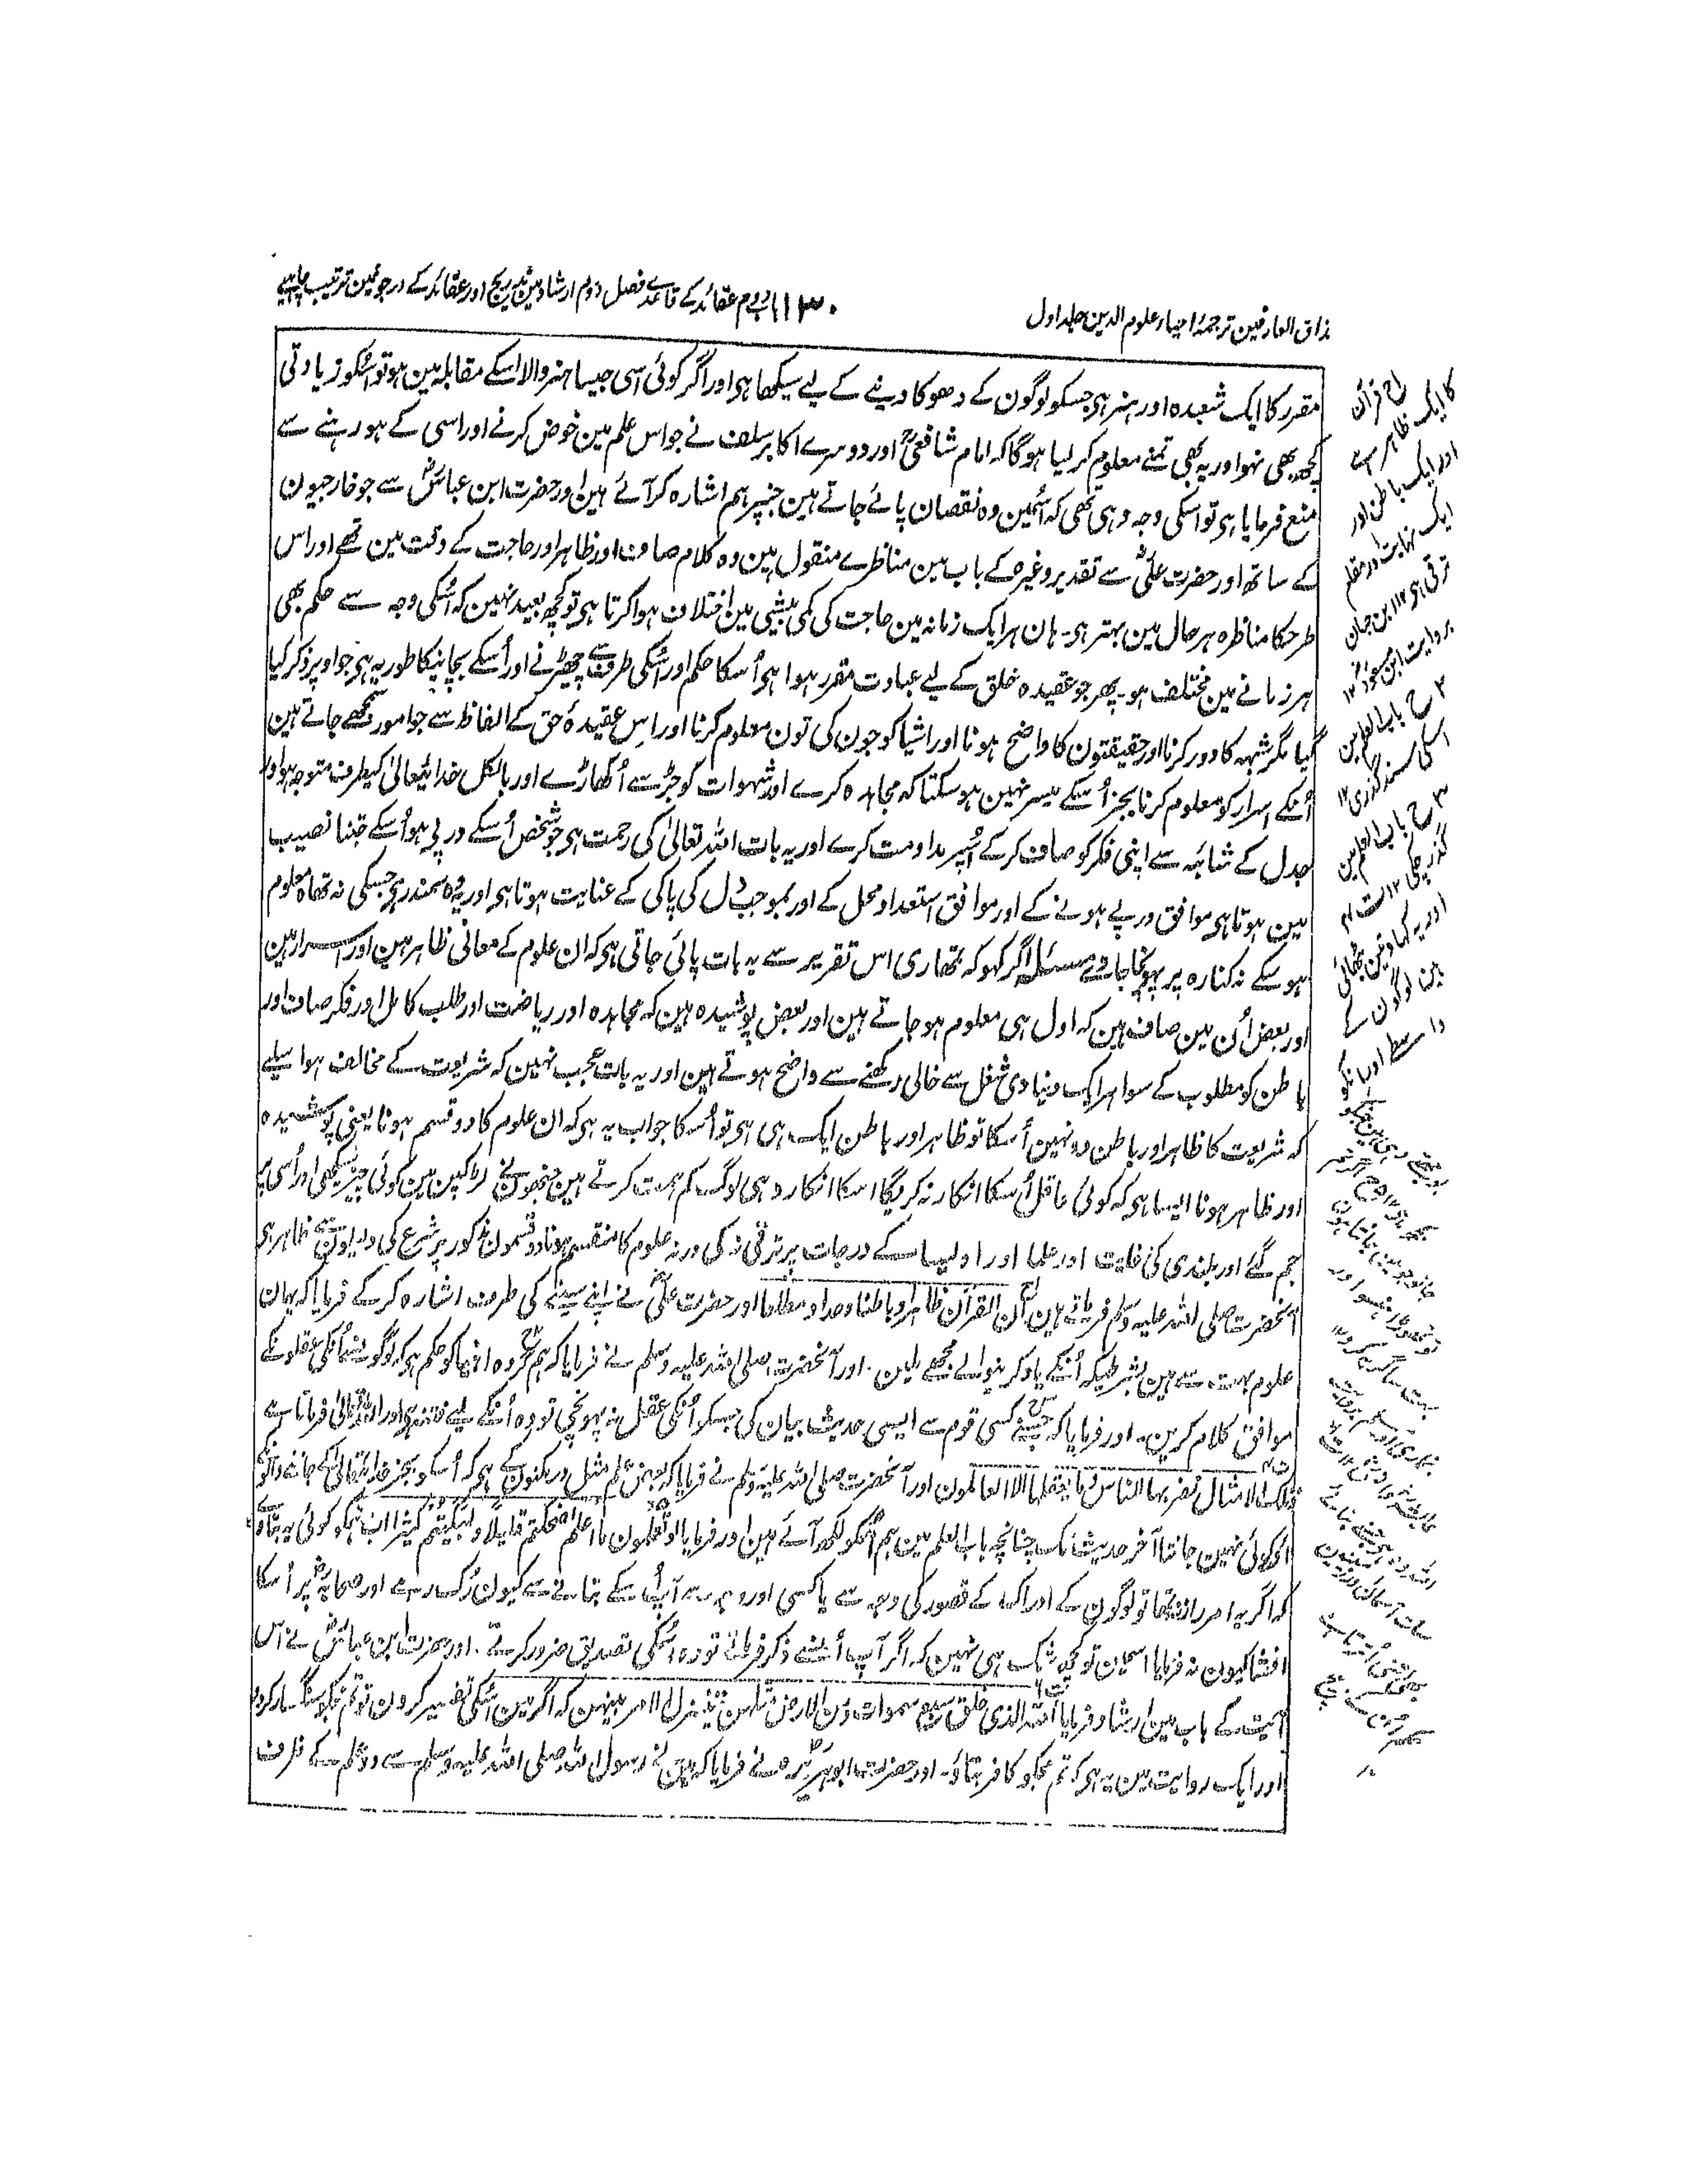 مذاق العارفین ترجمۂ احیاء علوم الدین جلد اول
۱۳۰
باب دوم عقائد کے قاعدے فصل دوم ارشاد مین تدریج اور عقائد کے درجونمین ترتیب چاہیے
مقرر کا ایک شعبدہ اور ہنر ہی جسکو لوگون کے دھوکا دینے کے لیے سیکھا ہی اور اگر کوئی اسی جیسا ہنر والا اسکے مقابلہ مین ہو تو اسکو زیادتی
کچھ بھی نہو اور یہ بھی تمنے معلوم کر لیا ہوگا کہ امام شافعیؒ اور دوسرے اکابر سلف نے جو اس علم مین خوض کرنے اور اسی کے ہو رہنے سے
منع فرمایا ہی تو اسکی وجہ وہی تھی کہ اسمین وہ نقصان پائے جاتے ہین جنپر ہم اشارہ کر آئے ہین اور حضرت ابن عباسؓ سے جو خارجیون
کے ساتھ اور حضرت علیؓ سے تقدیر وغیرہ کے باب مین مناظرے منقول ہین وہ کلام صاف اور ظاہر اور حاجت کے وقت مین تھے اور اس
طرحکا مناظرہ ہر حال مین بہتر ہی۔ ہان ہر ایک زمانہ مین حاجت کی کمی بیشی مین اختلاف ہوا کرتا ہی تو کچھ بعید نہین کہ اسکی وجہ سے حکم بھی
ہر زمانے مین مختلف ہو۔ پھر جو عقیدہ خلق کے لیے عبادت مقرر ہوا ہی اُسکا حکم اور اسکی طرف سے چھیڑنے اور اُسکے بچاپنیکا طور یہ ہی جو اوپر ذکر کیا
گیا مگر شبہہ کا دور کرنا اور حقیقتون کا واضح ہونا اور اشیا کو جون کی تون معلوم کرنا اور اس عقیدۂ حق کے الفاظ سے جو امور سمجھے جاتے ہین
اُنکے اسرار کو معلوم کرنا بجز اُسکے میسر نہین ہو سکتا کہ مجاہدہ کرے اور شہوات کو جڑ سے اُکھاڑے اور بالکل خدایتعالیٰ کیطرف متوجہ ہو اور
جدل کے شائبہ سے اپنی فکر کو صاف کر کے اُسپر مداومت کرے اور یہ بات اللہ تعالیٰ کی رحمت ہی جو شخص اُسکے درپی ہو اُسکے جتنا نصیب
مین ہوتا ہی موافق درپے ہونے کے اور موافق استعداد محل کے اور بموجب دل کی پاکی کے عنایت ہوتا ہی اور یہ وہ سمندر ہی جسکی نہ تھاہ معلوم
ہو سکے نہ کنارہ پر پہونچا جاوے مسئلہ اگر کہو کہ تمھاری اس تقریر سے یہ بات پائی جاتی ہی کہ ان علوم کے معانی ظاہر ہین اور اسرار ہین
اور بعض اُن مین صاف ہین کہ اول ہی معلوم ہو جاتے ہین اور بعض پوشیدہ ہین کہ مجاہدہ اور ریاضت اور طلب کامل اور فکر صاف اور
باطن کو مطلوب کے سوا ہر ایک دنیاوی شغل سے خالی رکھنے سے واضح ہوتے ہین اور یہ بات عجب نہین کہ شریعت کے مخالف ہو اسلیے
کہ شریعت کا ظاہر اور باطن دو نہین اُسکا تو ظاہر اور باطن ایک ہی ہی تو اُسکا جواب یہ ہی کہ ان علوم کا دو قسم ہونا یعنی پوشیدہ
اور ظاہر ہونا ایسا ہی کہ کوئی عاقل اُسکا انکار نہ کریگا اسکا انکار وہی لوگ کم ہمت کرتے ہین جنھون نے لڑکپن مین کوئی چیز سیکھی اور اُسی پر
جم گئے اور بلندی کی غایت اور علما اور اولیا کے درجات پر ترقی نہ کی ورنہ علوم کا منقسم ہونا دو قسمون مذکور پر شرع کی دلیلون سے ظاہر ہی
آنحضرت صلی اللہ علیہ وسلم فرماتے ہین ان القرآن ظاہرا و باطنا و حدا و مطلعا اور حضرت علیؓ نے اپنے سینے کی طرف اشارہ کر کے فرمایا کہ یہان
علوم بہت سے ہین بشرطیکہ اُنکے یاد کرنیوالے مجھے ملین۔ اور آنحضرت صلی اللہ علیہ وسلم نے فرمایا کہ ہم گروہ انبیا کو حکم ہی کہ لوگونسے اُنکی عقلونکے
موافق کلام کرین۔ اور فرمایا کہ جسنے کسی قوم سے ایسی حدیث بیان کی جسکو اُنکی عقل نہ پہونچی تو وہ اُنکے لیے فتنہ ہی اور اللہ تعالیٰ فرماتا ہے
وتلک الامثال نضربہا للناس وما یعقلہا الا العالمون اور آنحضرت صلی اللہ علیہ وسلم نے فرمایا کہ بعض علم مثل درِ مکنون کے ہی کہ اُسکو بجز خدایتعالیٰ کے جاننے والونکے
اور کوئی نہین جانتا آخر حدیث تک چنانچہ باب العلم مین ہم اُسکو لکھ آئے ہین اور فرمایا لو تعلمون ما اعلم لضحکتم قلیلاً ولبکیتم کثیرا اب ہمکو کوئی یہ بتاوے
کہ اگر یہ امر راز نتھا تو لوگون کے ادراک کے قصور کی وجہ سے یا کسی اور وجہ سے آپ اُسکے بتانے سے کیون رک رہے اور صحابہؓ پر اُسکا
افشا کیون نہ فرمایا اسمین تو کچھ شک ہی نہین کہ اگر آپ اُنسے ذکر فرماتے تو وہ اسکی تصدیق ضرور کرتے۔ اور حضرت ابن عباسؓ نے اس
آیت کے باب مین ارشاد فرمایا اللہ الذی خلق سبع سموات ومن الارض مثلہن یتنزل الامر بینہن کہ اگر مین اسکی تفسیر کرون تو تم مجکو سنگسار کرو
اور ایک روایت مین یہ ہی کہ تم مجکو کافر بتاؤ۔ اور حضرت ابوہریرہؓ نے فرمایا کہ مین نے رسول اللہ صلی اللہ علیہ وسلم سے دو علم کے ظرف
ح قرآن
کا ایک ظاہر ہے
اور ایک باطن اور
ایک نہایت اور مقام
ترقی ہی ۱۲ ابن حبان
بروایت ابن مسعودؓ ۱۲
۲ ح باب العلم مین
اسکی سند گذری ۱۲
۳ ح باب العلم مین
گذر چکی ۱۲
اور یہ کہاوتین بٹھائی
ہین لوگون کے
واسطے اور انکو
بوجھتے وہی ہین جنکو
سمجھ ہی ۱۲